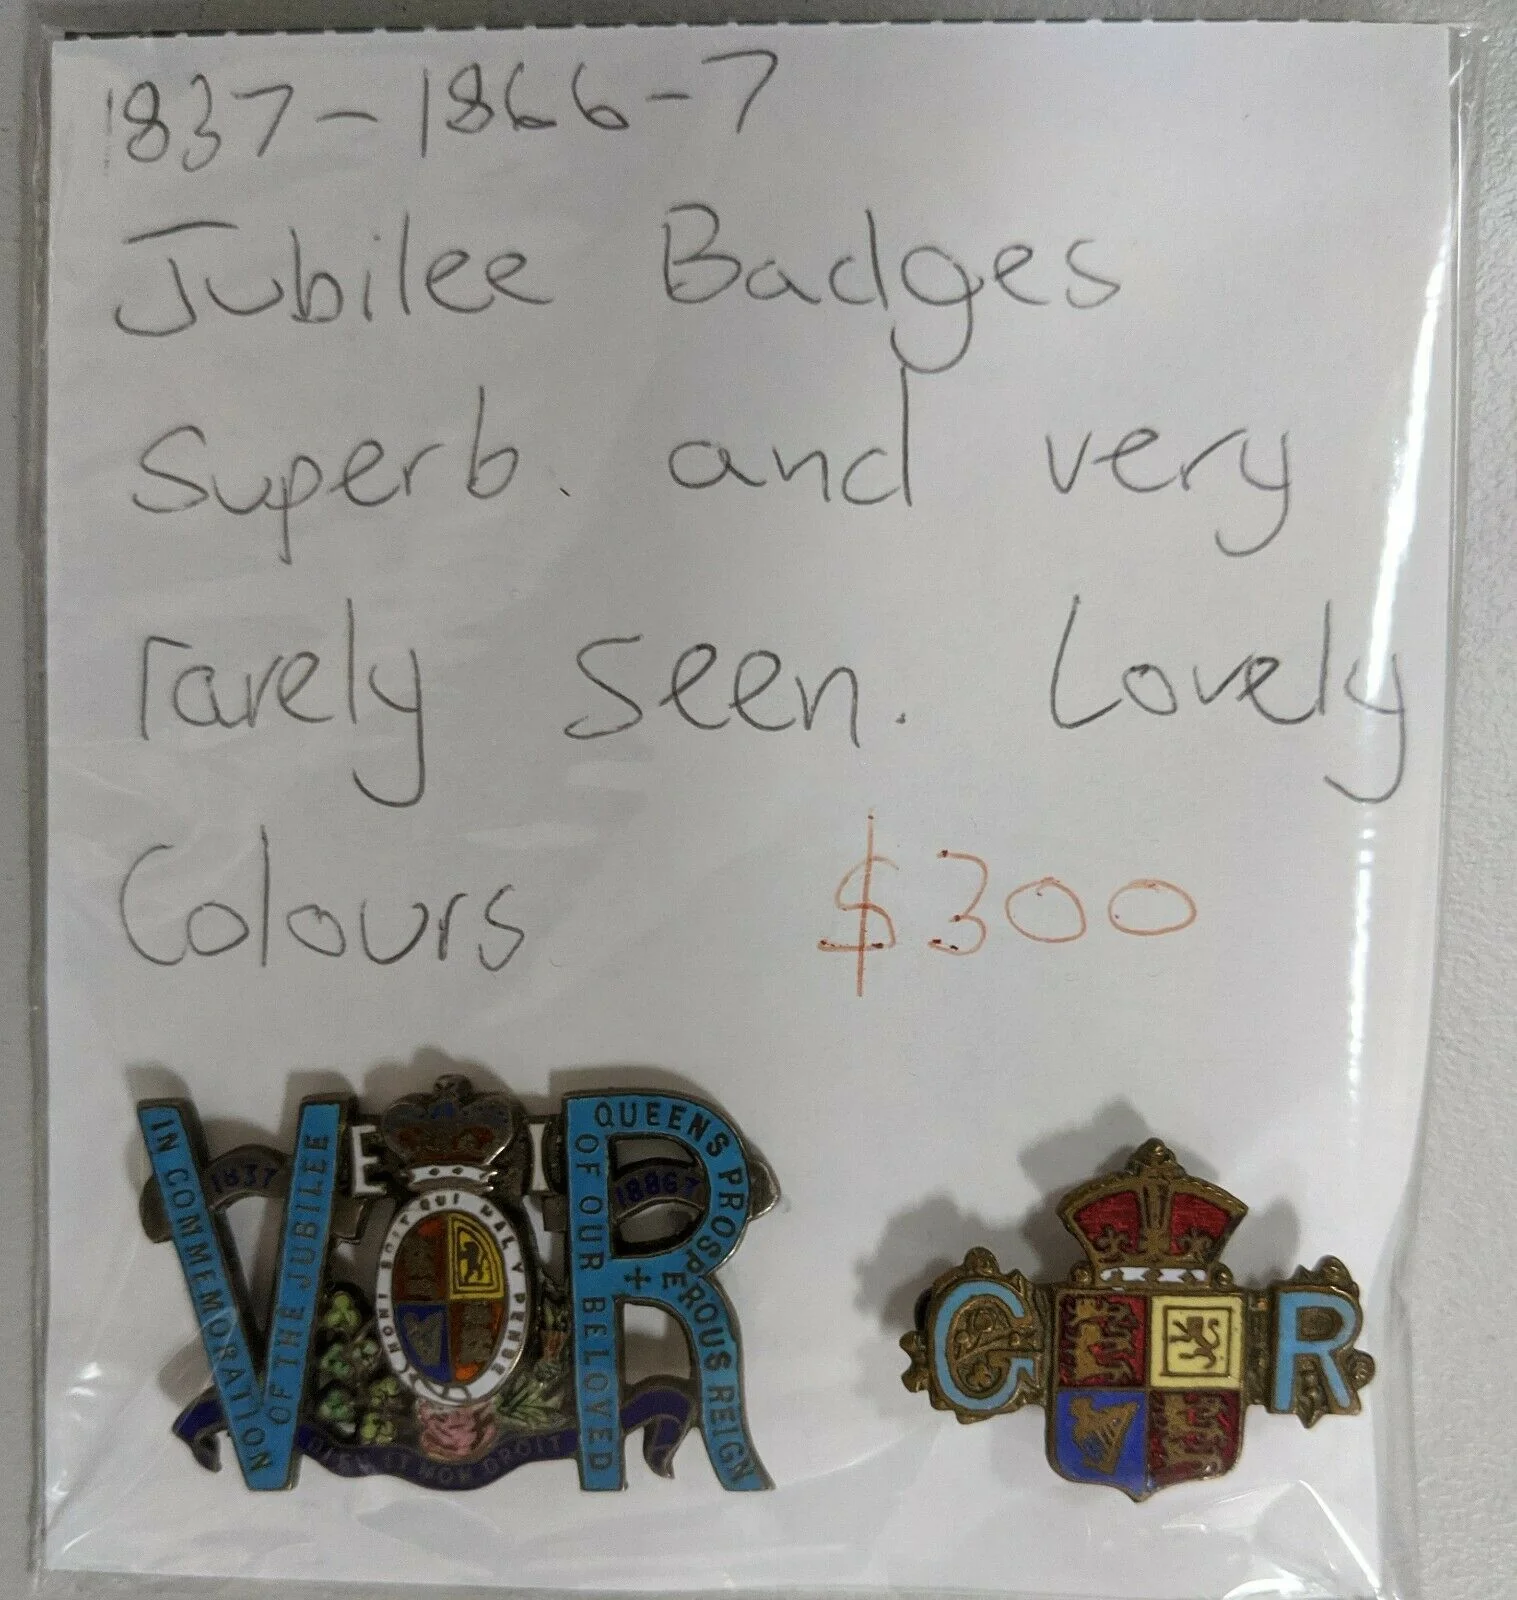 1837-1866-7
Jubilee Badges
Superb. and very
rarely seen. Lovely
Colours $300
IN COMMEMORATION
OF THE JUBILEE
1837
E I
18867
OF OUR BELOVED
QUEENS PROSPEROUS REIGN
HONI SOIT QUI MAL Y PENSE
DIEU ET MON DROIT
G R